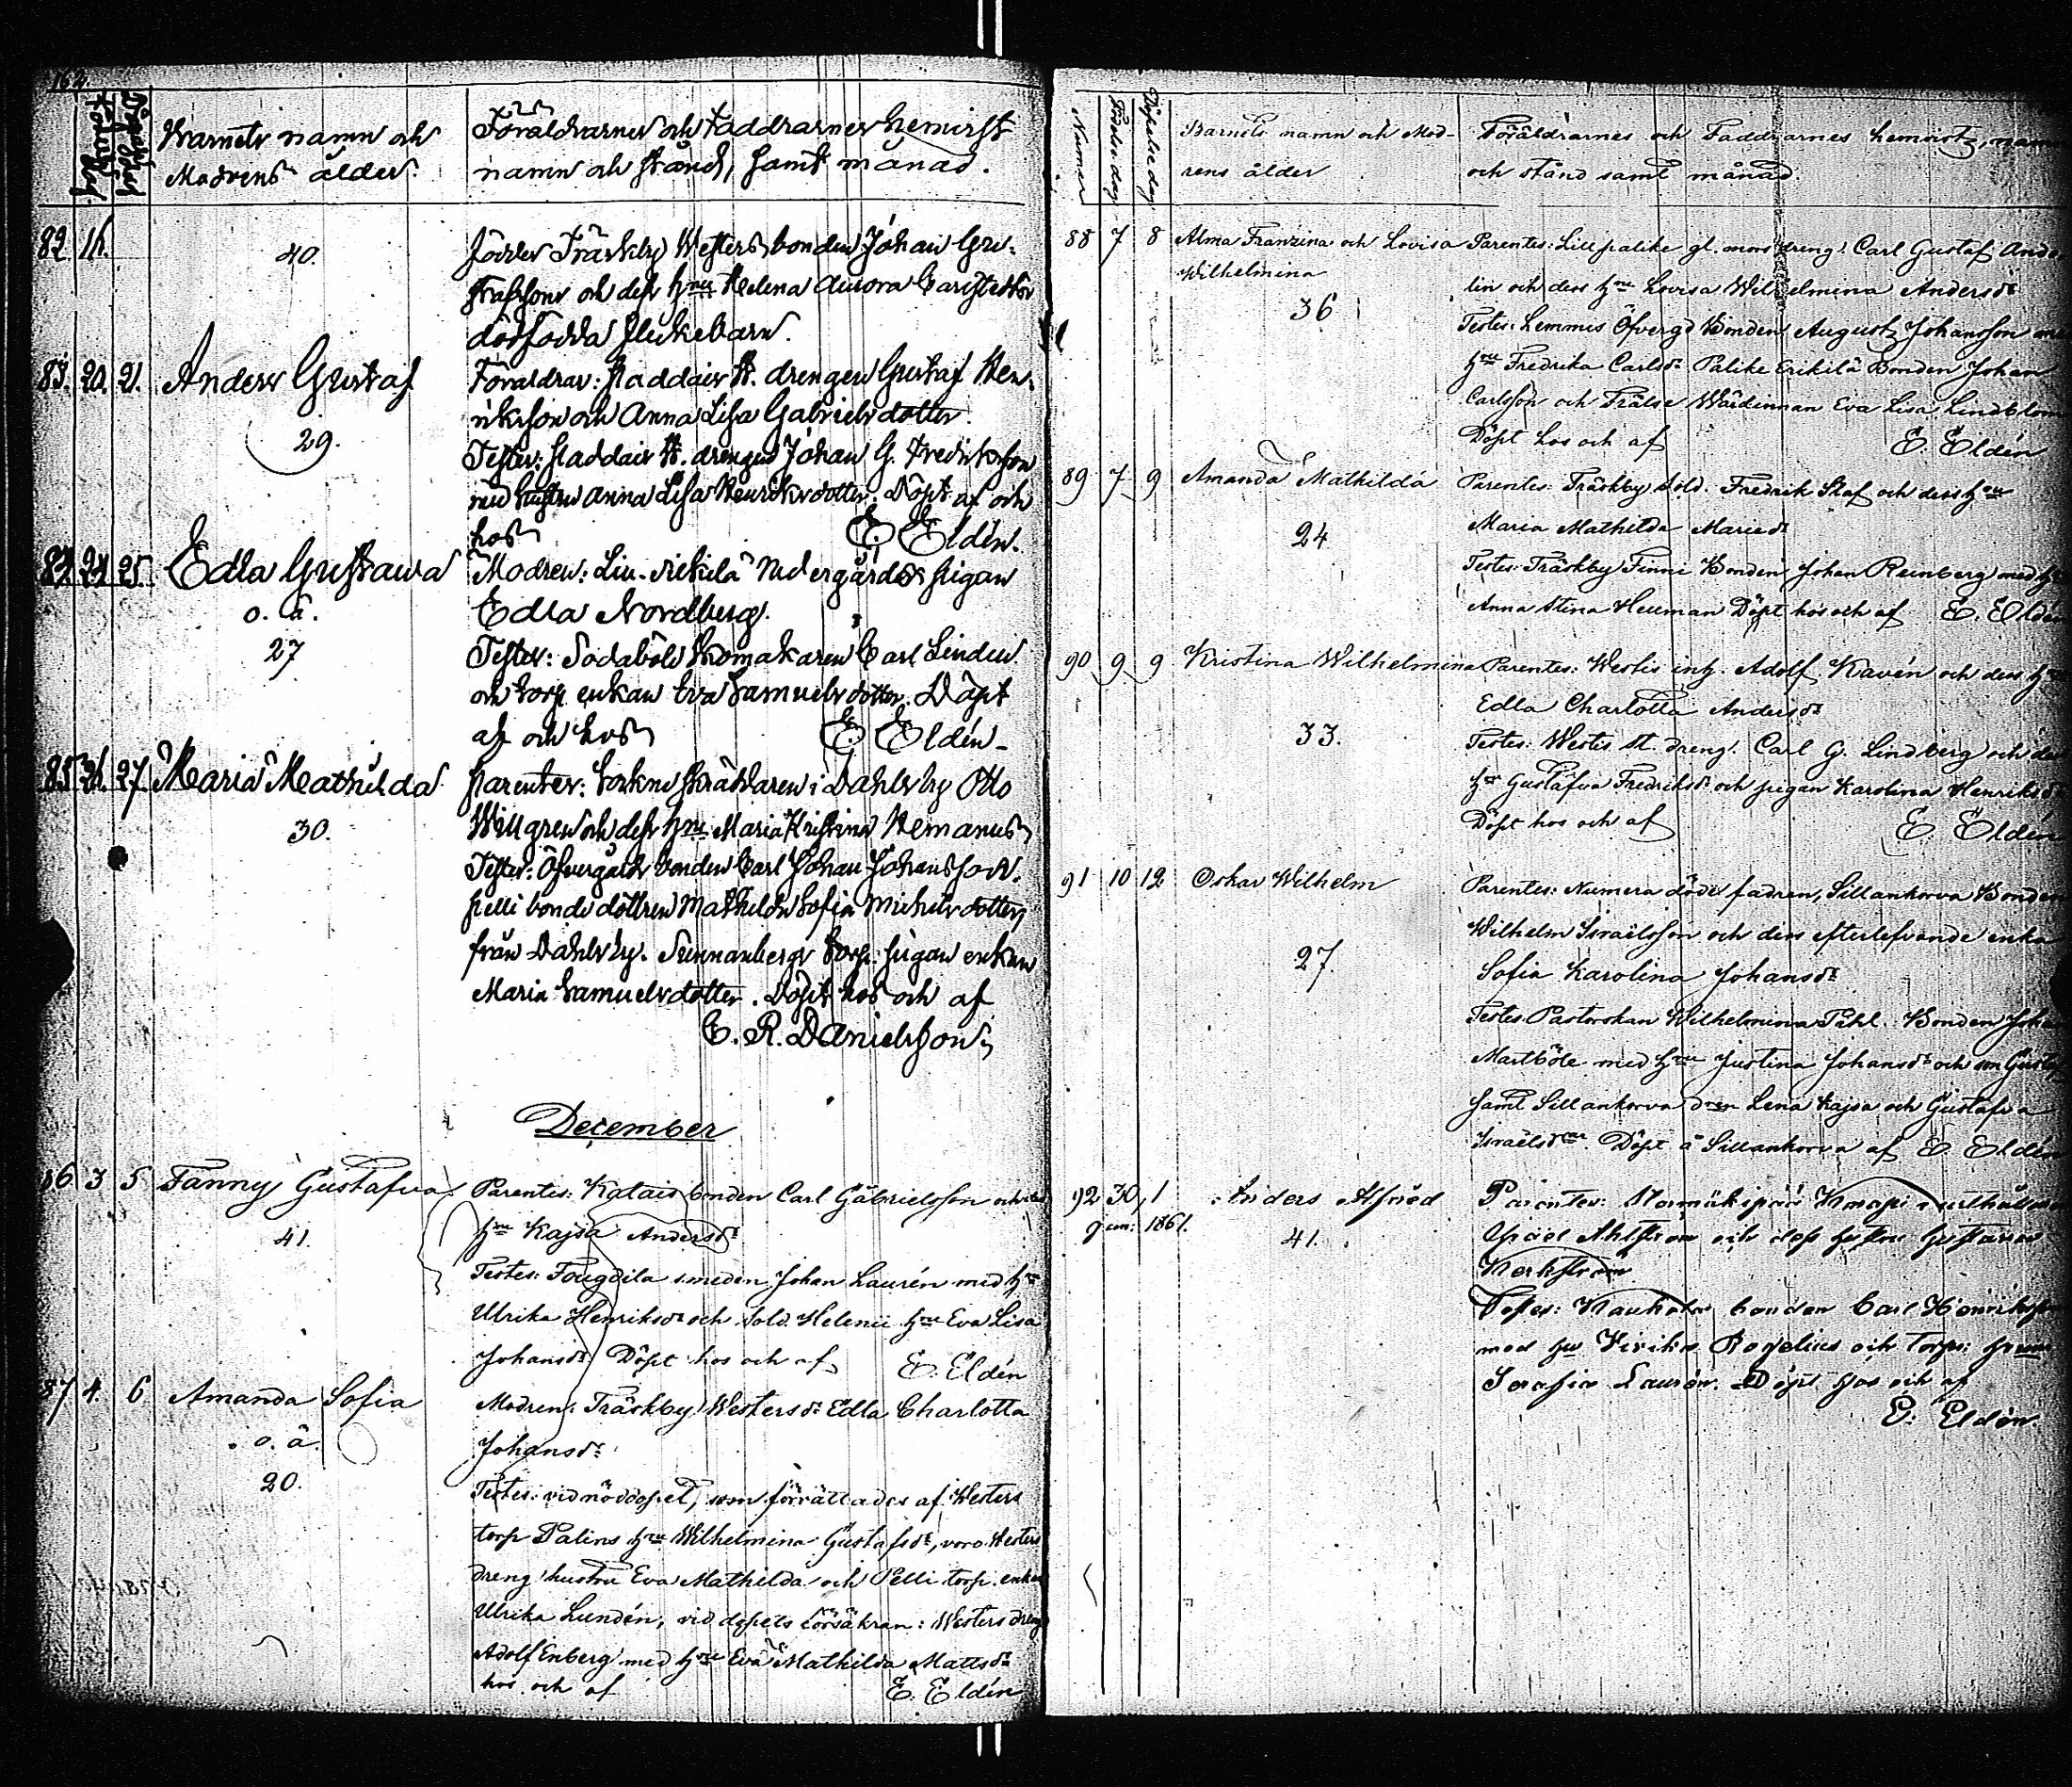 162.
Barnets namn och
Modrens ålder.
Föräldrarnes och Faddrarnes hemvist
namn och stånd, samt månad.
82. 16.
40.
Träskby Westers bonden Johan Gu-
stafsson och dess hru Helena Aurora
dödfödda flickebarn.
83. 20. 21. Anders Gustaf
29.
Föräldrar: Haddais st. drengen Gustaf Hen-
riksson och Anna Lisa Gabrielsdotter.
Testes: Haddais st. drengen Johan G. Fredriksson
med hustru Anna Lisa Henriksdotter. Döpt af och
hos E. Eldén.
84. 24. 25. Edla Gustawa
o. ä.
27
Modren: Nedergårds pigan
Edla Nordberg.
Testes: Sodaböle Skomakaren Carl Lindén
och torp. enkan Eva Samuelsdotter. Döpt
af och hos E. Eldén.
85. 26. 27. Maria Mathilda
30.
Parentes: Sockne skräddaren i Dahlsby Otto
Willgren och dess hru Maria Kristina Hemanus
Testes: Öfvergårds bonden Carl Johan Johansson.
Pelli bonde dottren Mathilda Sofia Michelsdotter,
från Dahlsby. Sunnanbergs torp. pigan enkan
Maria Samuelsdotter. Döpt hos och af
C. R. Danielsson.
December
86 3 5 Fanny Gustafva
41.
Parentes: Katais bonden Carl Gabrielsson och dess
hru Kajsa Andersdr
Testes: Fougdila smeden Johan Laurén med hru
Ulrika Henriksdr och Sold. Helenii hru Eva Lisa
Johansdr. Döpt hos och af E. Eldén
87 4. 6 Amanda Sofia
o. ä.
20.
Modren: Träskby Westers dr Edla Charlotta
Johansdr
Testes: vid nöddopet, som förrättades af Westers
torp Palins hru Wilhelmina Gustafsdr, voro Westers
dreng hustru Eva Mathilda och Pelli torp. enkan
Ulrika Lundén, vid dopets försäkran: Westers dreng
Adolf Enberg med hru Eva Mathilda Mattsdr
hos och af E. Eldén
Numer
Födelse dag
Döpelse dag
Barnets namn och Mod-
rens ålder
Föräldrarnes och Faddrarnes hemvist, namn
och stånd samt månad.
88 7 8 Alma Franzina och Lovisa
Wilhelmina
36
Parentes: Lillpalike gl. mons dreng. Carl Gustaf
lin och dess hru Lovisa Wilhelmina Andersdr
Testes: Lemmis Öfvergd Bonden August Johansson
hru Fredrika Carlsdr Palike Erikilä Bonden Johan
Carlsson och Frälse Wärdinnan Eva Lisa Lindblom
Döpt hos och af E. Eldén
89 7 9 Amanda Mathilda
24
Parentes: Träskby Sold. Fredrik Staf och dess hru
Maria Mathilda Mariedr
Testes: Träskby Finni Bonden Johan Reinberg med hru
Anna Stina Heuman Döpt hos och af E. Eldén
90 9 9 Kristina Wilhelmina
33.
Parentes: Westis inh. Adolf Kavén och dess hru
Edla Charlotta Andersdr
Testes: Westis st. dreng. Carl G. Lindberg och
hru Gustafva Fredriksdr och pigan Karolina Henriksdr
Döpt hos och af E. Eldén
91 10 12 Oskar Wilhelm
27.
Parentes: Numera döde fadren, Sillankorva Bonden
Wilhelm Israelsson och dess efterlefvande enka
Sofia Karolina Johansdr
Testes Pastorskan Wilhelmina Pihl. Bonden
Martböle med hru Justina Johansdr och son
Samt Sillankorva Lena Kajsa och Gustafva
Döpt å Sillankorva af E. Eldén
92 30, 1 Anders Alfred
1861.
41.
Parentes:
Ahlström och dess hustru Gustawa
Testes: bonden Carl Henriksson
med hru Ulrika Rogelius och torp.
Serafia Laurén. Döpt hos och af
E. Eldén.